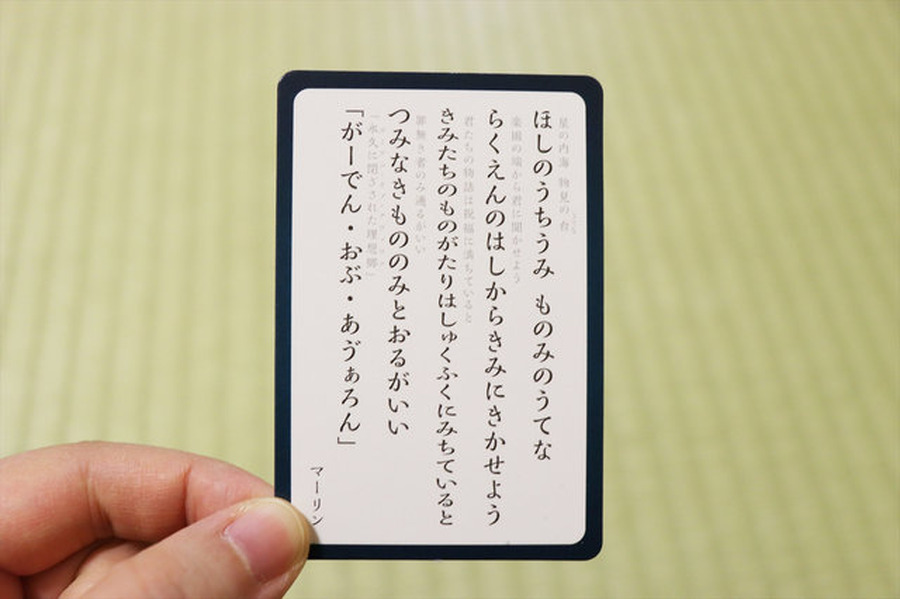 星の内海　物見の台
うてな
ほしのうちうみ　ものみのうてな
楽園の端から君に聞かせよう
らくえんのはしからきみにきかせよう
君たちの物語は祝福に満ちていると
きみたちのものがたりはしゅくふくにみちていると
罪無き者のみ通るがいい
つみなきもののみとおるがいい
「永久に閉ざされた理想郷」
「がーでん・おぶ・あゔぁろん」
マーリン